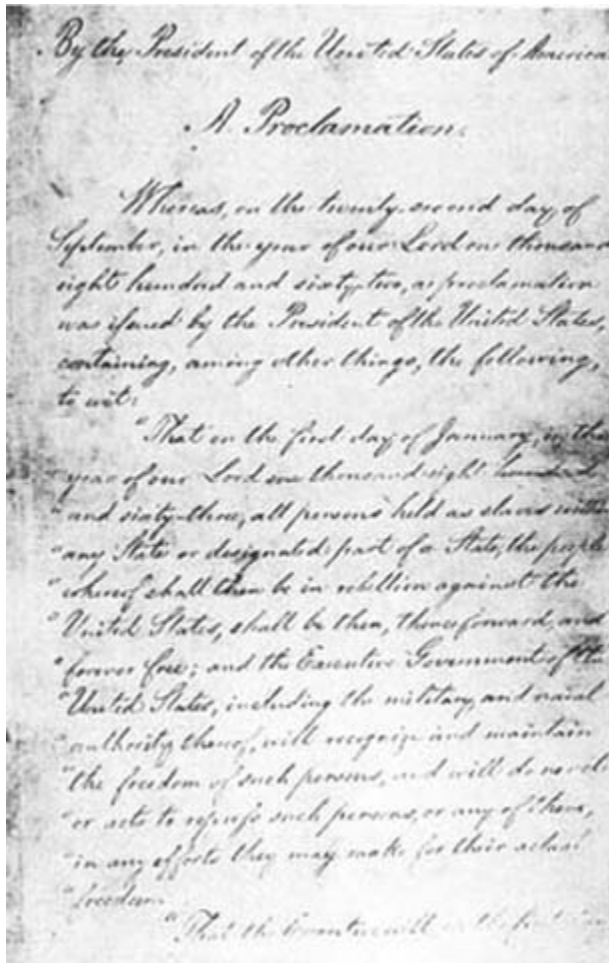 By the President of the United States of America
A Proclamation.
Whereas, on the twenty-second day of
September, in the year of our Lord one thousand
eight hundred and sixty-two, a proclamation
was issued by the President of the United States,
containing, among other things, the following,
to wit:
"That on the first day of January, in the
"year of our Lord one thousand eight hundred
"and sixty-three, all persons held as slaves within
"any State or designated part of a State, the people
"whereof shall then be in rebellion against the
"United States, shall be then, thenceforward, and
"forever free; and the Executive Government of the
"United States, including the military and naval
"authority thereof, will recognize and maintain
"the freedom of such persons, and will do no act
"or acts to repress such persons, or any of them,
"in any efforts they may make for their actual
"freedom.
"That the Executive will on the first